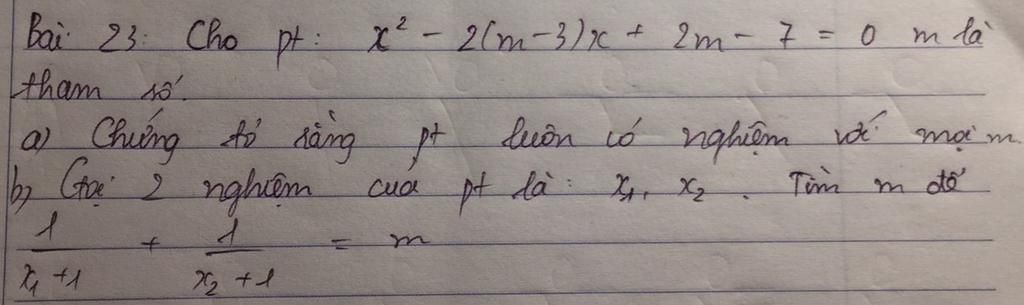 Bài 23: Cho pt: x² - 2(m-3)x + 2m - 7 = 0 m là
tham số.
a) Chứng tỏ rằng pt luôn có nghiệm với mọi m.
b) Gọi 2 nghiệm của pt là: x₁, x₂. Tìm m để
1/(x₁ + 1) + 1/(x₂ + 1) = m